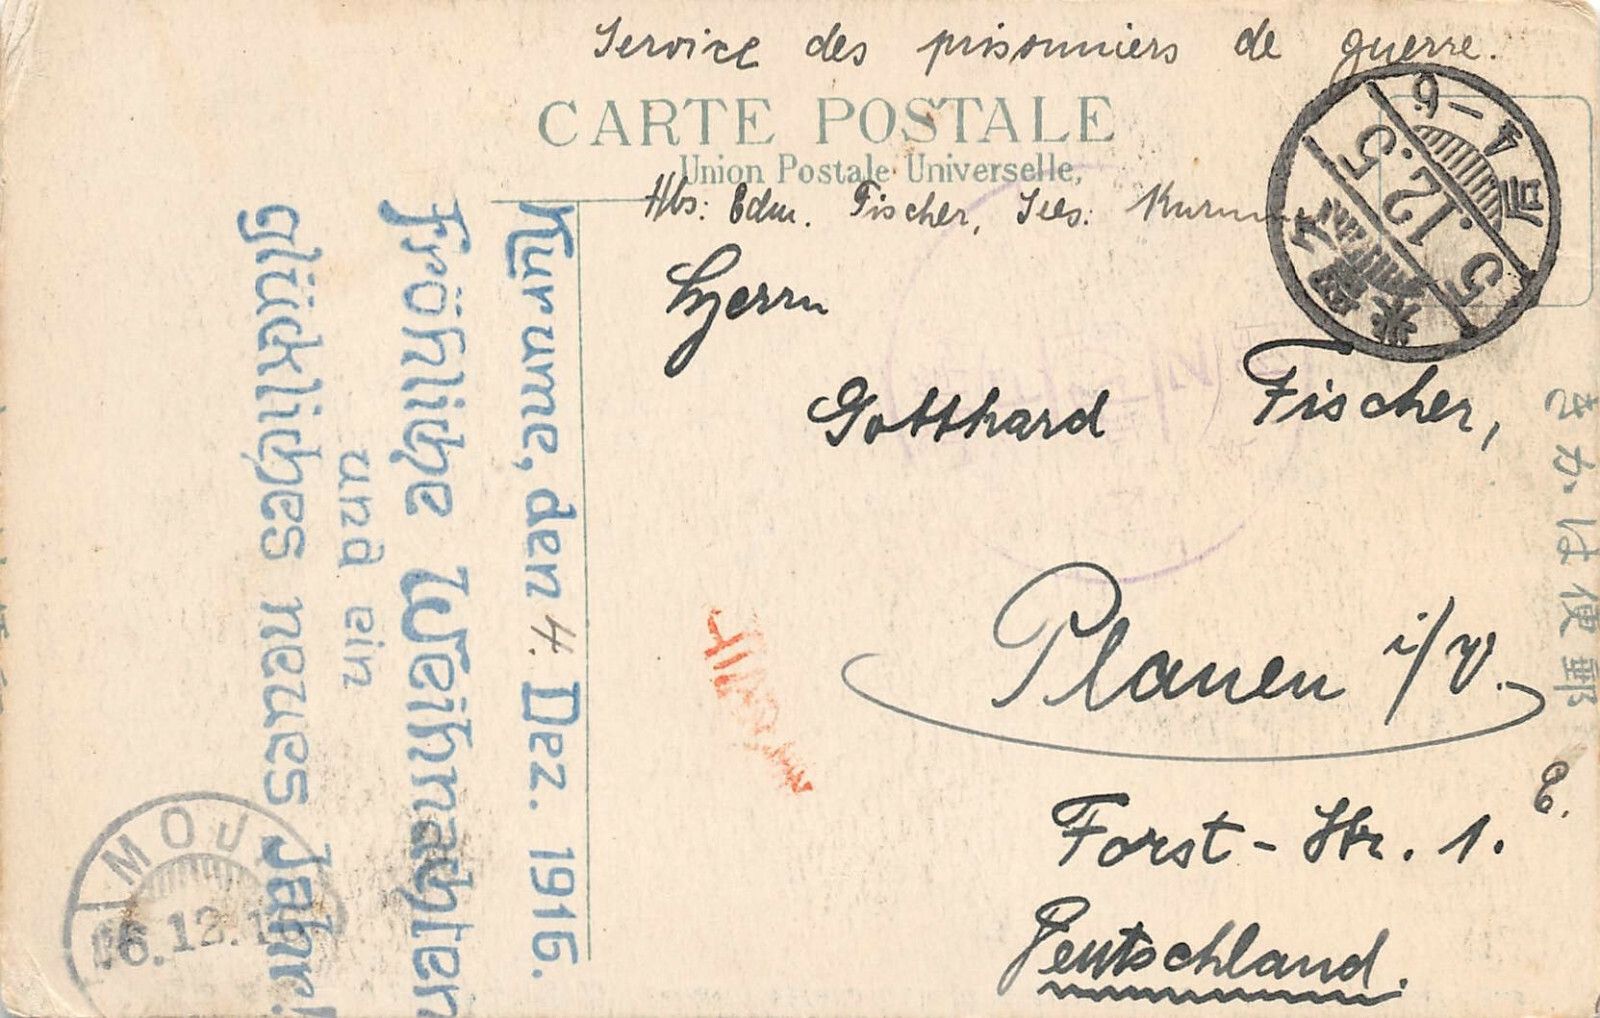 Service des prisonniers de guerre.
CARTE POSTALE
Union Postale Universelle,
Abs: Edm. Fischer,
Herrn
Gotthard Fischer,
Plauen i/V.
Forst-Str. 1. E.
Deutschland.
Kurume, den 4. Dez. 1916.
Fröhliche Weihnachten
und ein
glückliches neues Jahr!
5.12.5
4-6
久留米
MOJ
6.12.1
きかは便郵